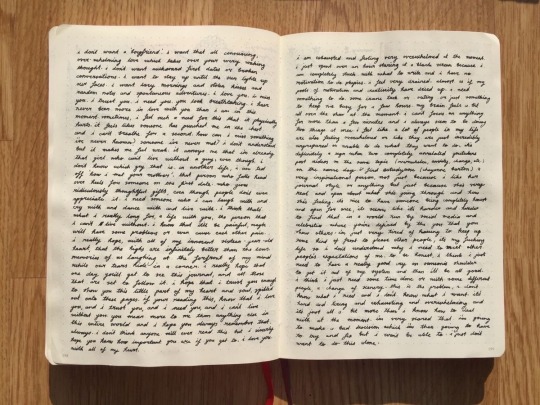 i don't want a 'boyfriend'. i want that all consuming,
over whelming love which takes over your every waking
thought. i don't want awkward first dates or broken
conversations. i want to stay up until the sun lights up
our faces. i want lazy mornings and stolen kisses and
random notes and spontaneous adventures. i love you, i miss
you, i trust you, i need you, you look breathtaking. i have
never been more in love with you than i am at this
moment. sometimes, i feel such a need for this that it physically
hurts. it feels like someone has punched me in the chest
and i can't breathe for a second. how can i miss something
i've never known? someone i've never met? i don't understand
but it makes me feel weak. it annoys me that i'm already
that girl who can't live without a guy, even though i
don't know which guy that is. in another life, i am led
off how i met your mother, that person who falls head
over heels for someone on the first date, who gives
ridiculously thoughtful gifts even though people don't ever
appreciate it. i need someone who i can laugh with and
cry with and dance with and live with. i think that
what i really long for, a life with you, the person that
i can't live without. i know that it'll be painful, maybe
will have some problems or even cause each other pain.
i really hope, with all of my innocent sixteen year old
heart, that the highs are infinitely better than the lows.
memories of us laughing at the forefront of my mind
while our tears in a corner. i really hope that
one day you'll get to see this journal, and all those
that are yet to follow it. i hope that i trust you enough
to show you this little part of my heart and soul spilled
out onto these pages. if your reading this, know that i love
you, and i trust you, and i need you and i can't live
without you. you mean more to me than anything else in
this entire world and i hope you always remember that,
always. i don't think anyone will ever read this but i sincerely
hope you know how important you are if you get to. i love you
with all of my heart.
i am exhausted and feeling very overwhelmed at the moment.
i just spent over an hour staring at a blank screen because i
am completely stuck with what to write and i have no
motivation to do physics. i feel very drained, almost as if my
pools of motivation and creativity have dried up. i need
something to do, some course task or outing or just something
to keep me busy for a few hours. my brain feels a bit
all over the show at the moment. i can't focus on anything
for more than a few minutes and i always seem to be doing
two things at once. i feel like a lot of people in my life
are also feeling overwhelmed or like they are just incredibly
unprepared or unable to do what they want to do. it's
definitely a sign when two completely unrelated youtubers
post videos on the same topic
on the same day. i find
very inspirational person, not just because i like her
journal style or anything but because she's very
real and open about what she's going through and knowing
this feeling. it's nice to have someone being completely honest
and open for once, it seems like it's harder and harder
to find that in a world run by social media and
celebrities where you're defined by the you that you
show others. i'm just very tired of having to keep up
some kind of front to please other people, it's my fucking
life so i don't understand why i need to trust other
people's expectations of me to be honest, i think i just
need to have a really good cry on someone's shoulder
to get it out of my system and then i'll be all good.
i think i just need some time alone or with some different
people, a change of scenery. this is the problem, i don't
know what i need and i don't know what i want. it's
tiring and being and exhausting and overwhelming and
it's just all a bit more than i know how to deal
with at the moment. i'm very scared that i'm going
to make a bad decision which i'm then going to have
to try and fix but i won't be able to. i just don't
want to do this alone.